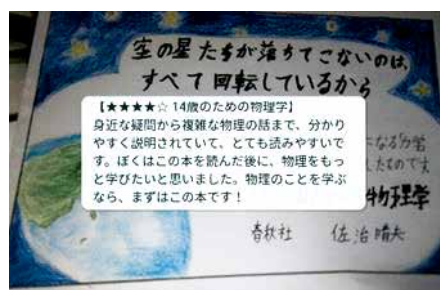 空の星たちが落ちてこないのは、
すべて回転しているから
【★★★★☆ 14歳のための物理学】
身近な疑問から複雑な物理の話まで、分かり
やすく説明されていて、とても読みやすいで
す。ぼくはこの本を読んだ後に、物理をもっ
と学びたいと思いました。物理のことを学ぶ
なら、まずはこの本です！
になる分野
したものです
物理学
春秋社 佐治晴夫